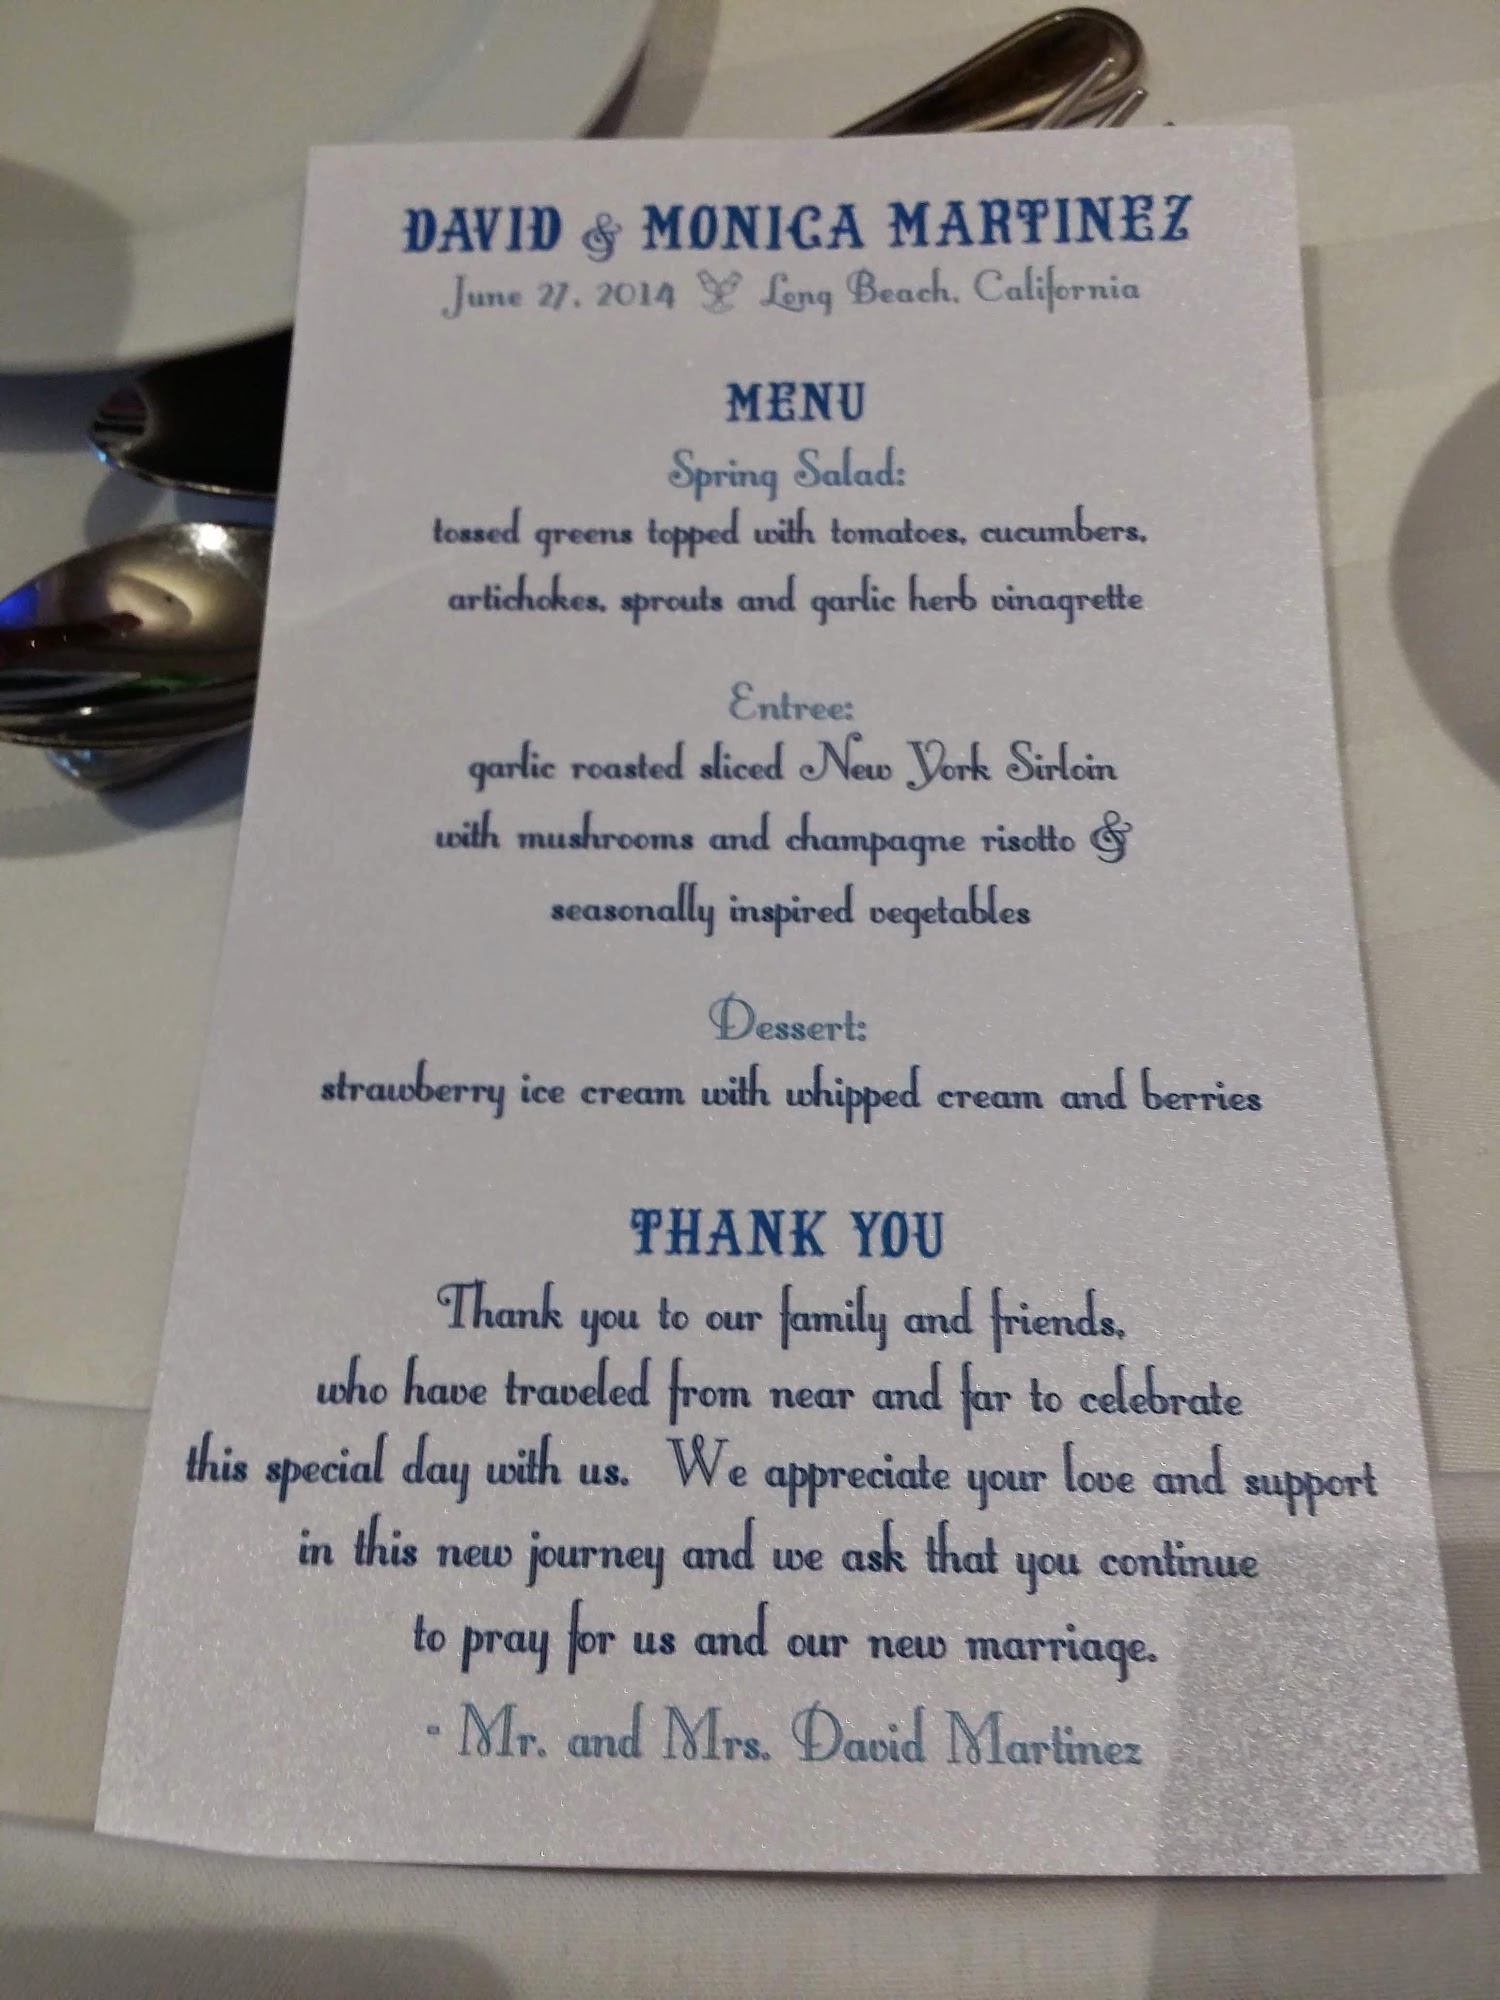 DAVID & MONICA MARTINEZ
June 27, 2014 Long Beach, California
MENU
Spring Salad:
tossed greens topped with tomatoes, cucumbers,
artichokes, sprouts and garlic herb vinagrette
Entree:
garlic roasted sliced New York Sirloin
with mushrooms and champagne risotto &
seasonally inspired vegetables
Dessert:
strawberry ice cream with whipped cream and berries
THANK YOU
Thank you to our family and friends,
who have traveled from near and far to celebrate
this special day with us. We appreciate your love and support
in this new journey and we ask that you continue
to pray for us and our new marriage.
- Mr. and Mrs. David Martinez